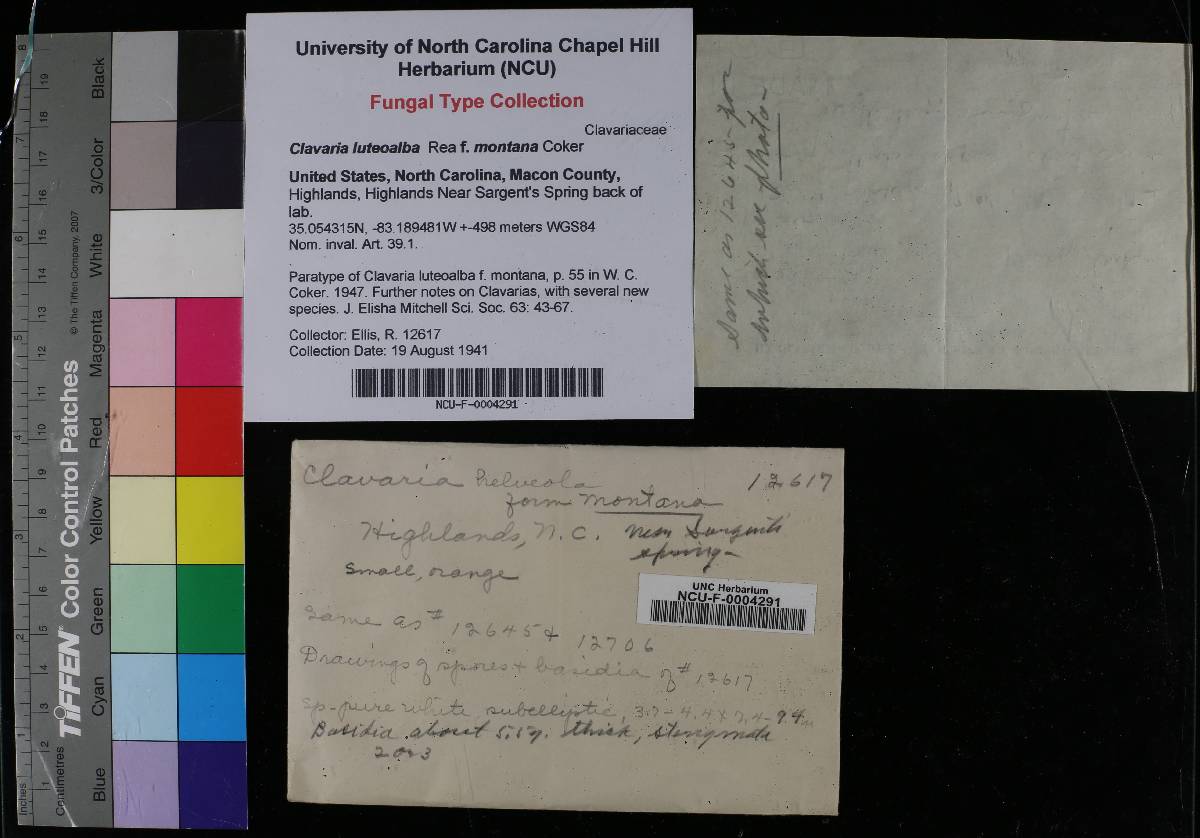 University of North Carolina Chapel Hill
Herbarium (NCU)
Fungal Type Collection
Clavariaceae
Clavaria luteoalba Rea f. montana Coker
United States, North Carolina, Macon County,
Highlands, Highlands Near Sargent's Spring back of
lab.
35.054315N, -83.189481W +-498 meters WGS84
Nom. inval. Art. 39.1.
Paratype of Clavaria luteoalba f. montana, p. 55 in W. C.
Coker. 1947. Further notes on Clavarias, with several new
species. J. Elisha Mitchell Sci. Soc. 63: 43-67.
Collector: Ellis, R. 12617
Collection Date: 19 August 1941
NCU-F-0004291
Same as 12645- for
which see photo-
Clavaria helveola 12617
form montana
Highlands, N.C. near Sargent's
spring-
Small, orange
Same as # 12645 & 12706
Drawings of spores + basidia of # 12617
Sp-pure white, subelliptic, 3.7-4.4 x 7.4-9.4
Basidia about 5.5 thick, sterigmata
2 or 3
UNC Herbarium
NCU-F-0004291
TIFFEN Color Control Patches
© The Tiffen Company, 2007
Black
3/Color
White
Magenta
Red
Yellow
Green
Cyan
Blue
Inches
1 2 3 4 5 6 7 8
Centimetres
1 2 3 4 5 6 7 8 9 10 11 12 13 14 15 16 17 18 19